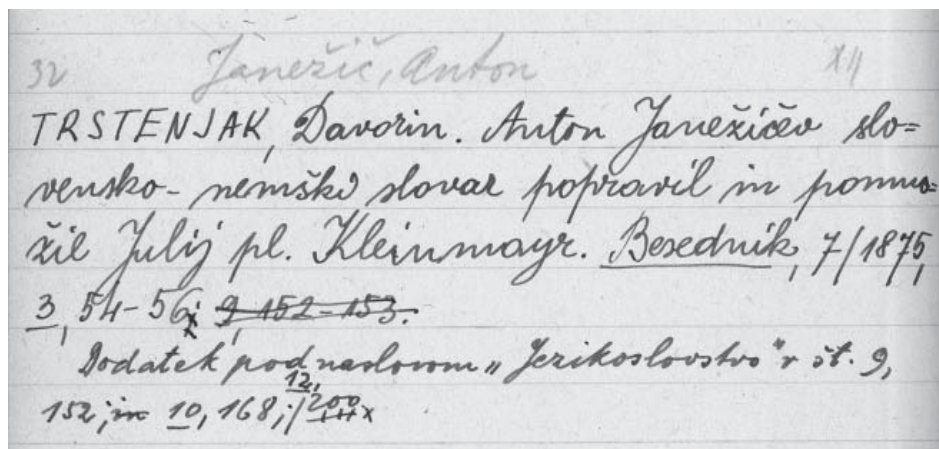 32 Janežič, Anton XII
TRSTENJAK, Davorin. Anton Janežičev slo=
vensko-nemški slovar popravil in pomno=
žil Julij pl. Kleinmayr. Besednik, 7/1875,
3, 54-56; 9, 152-153.
Dodatek pod naslovom „Jezikoslovstvo" v št. 9,
12,
152; in 10, 168; 200